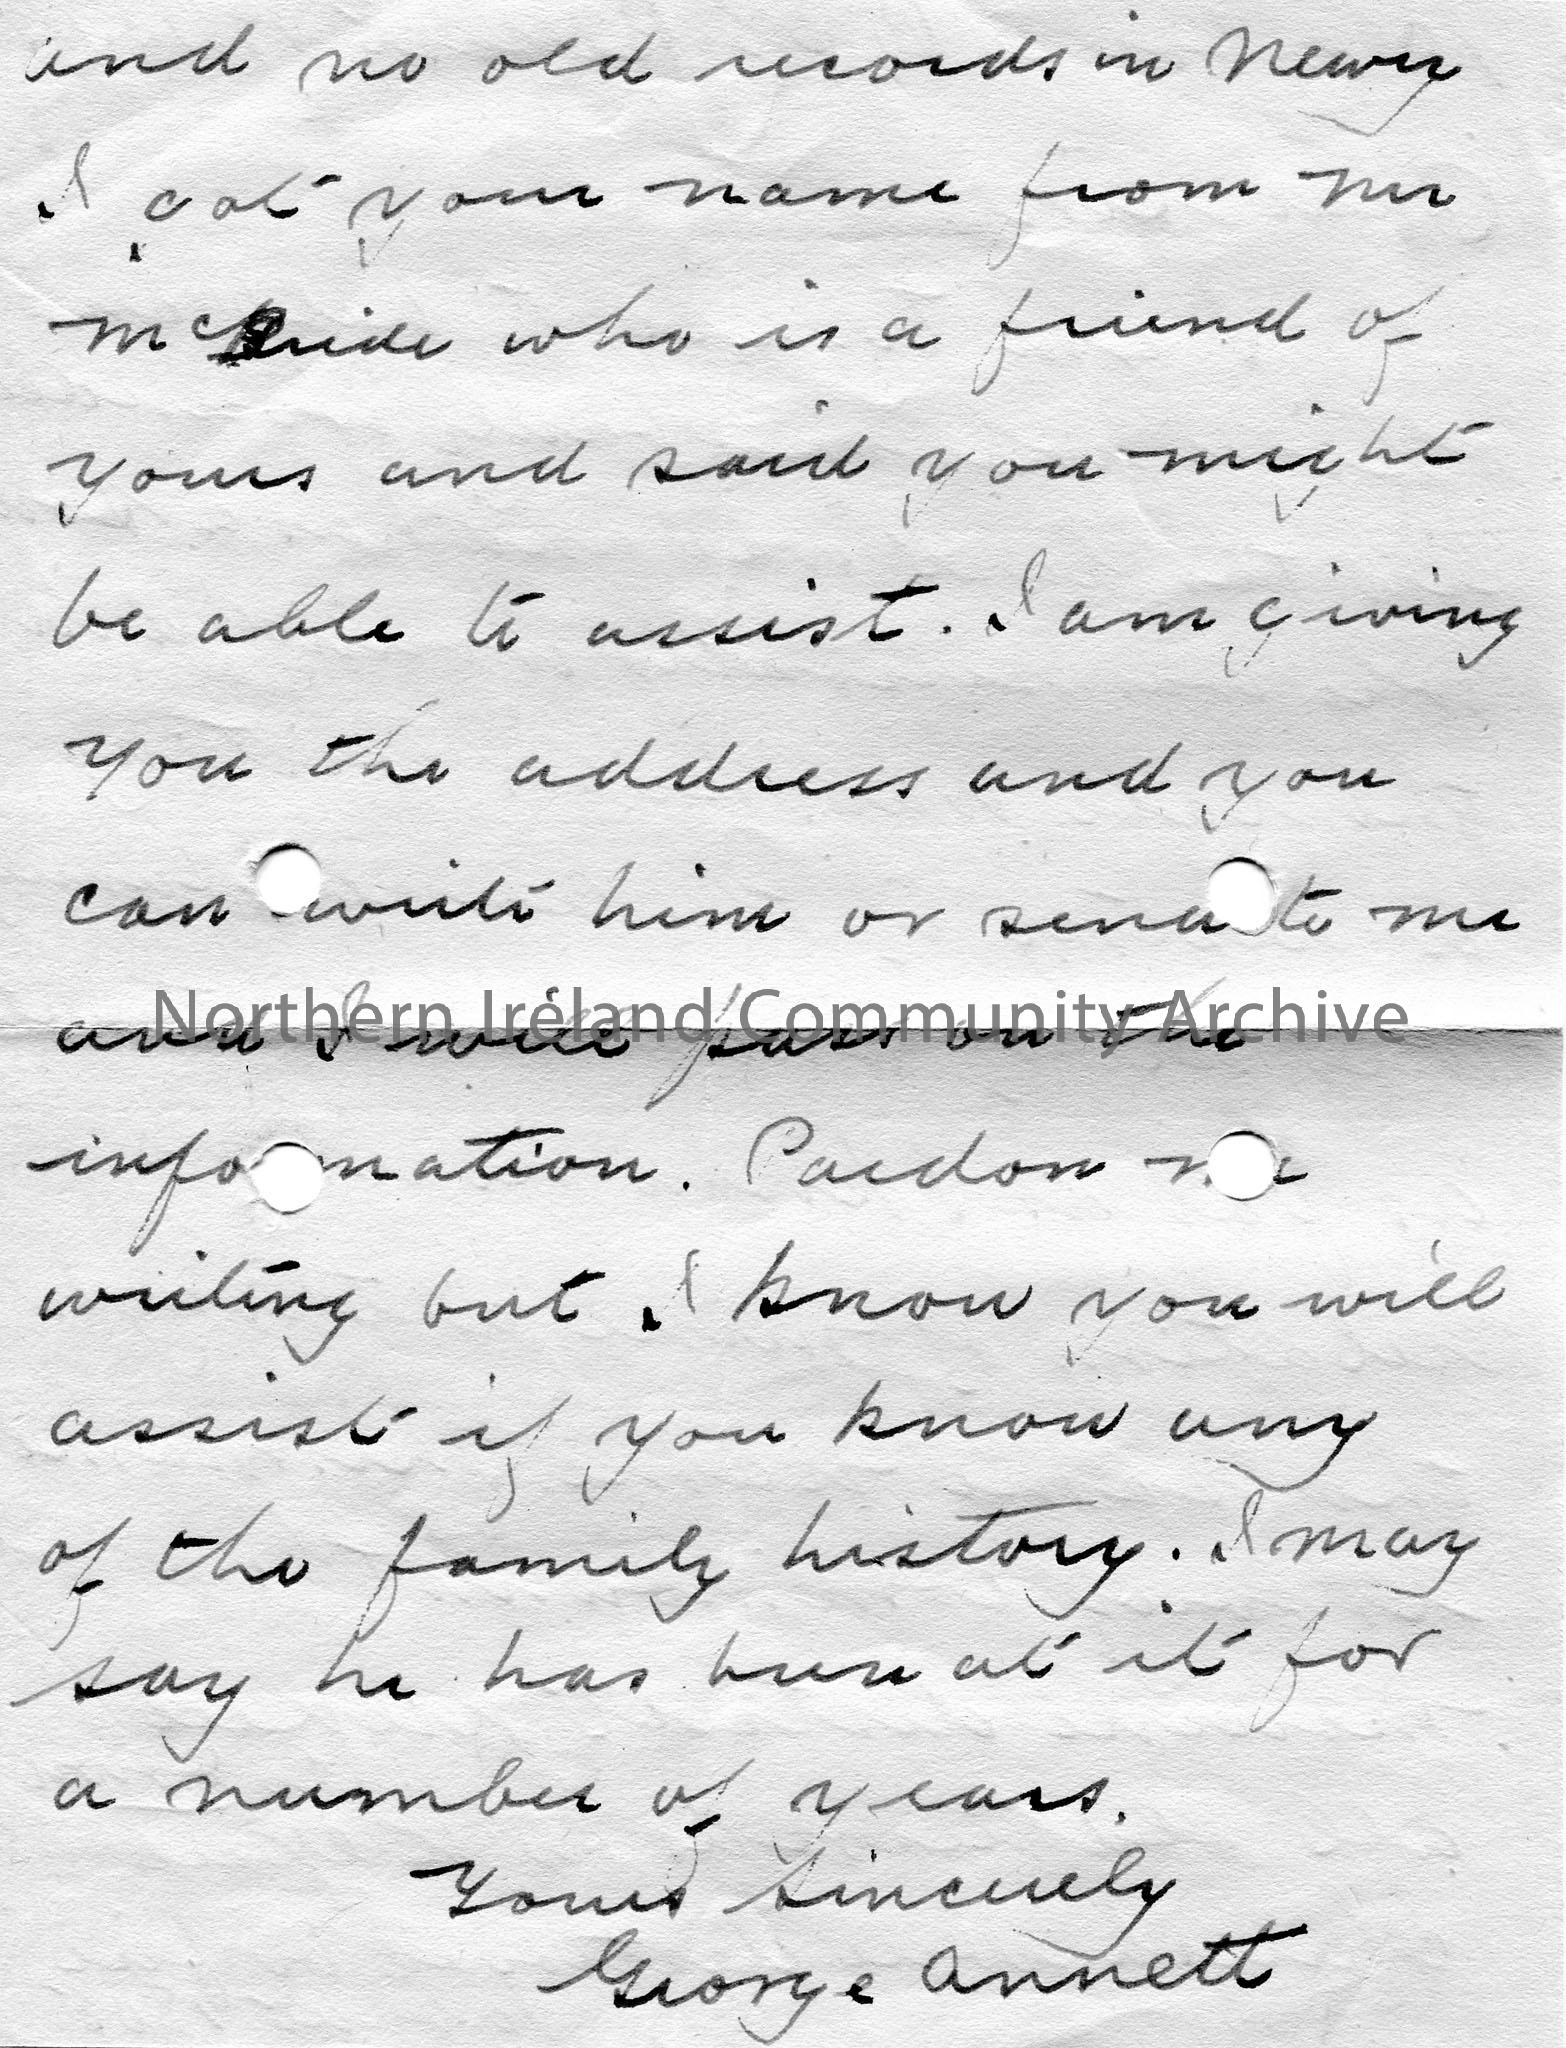 and no old records in Newry
I got your name from Mr
McBride who is a friend of
yours and said you might
be able to assist. I am giving
you the address and you
can write him or send to me
and I will pass on the
Northern Ireland Community Archive
information. Pardon me
writing but I know you will
assist if you know any
of the family history. I may
say he has been at it for
a number of years.
Yours Sincerely
George Annett